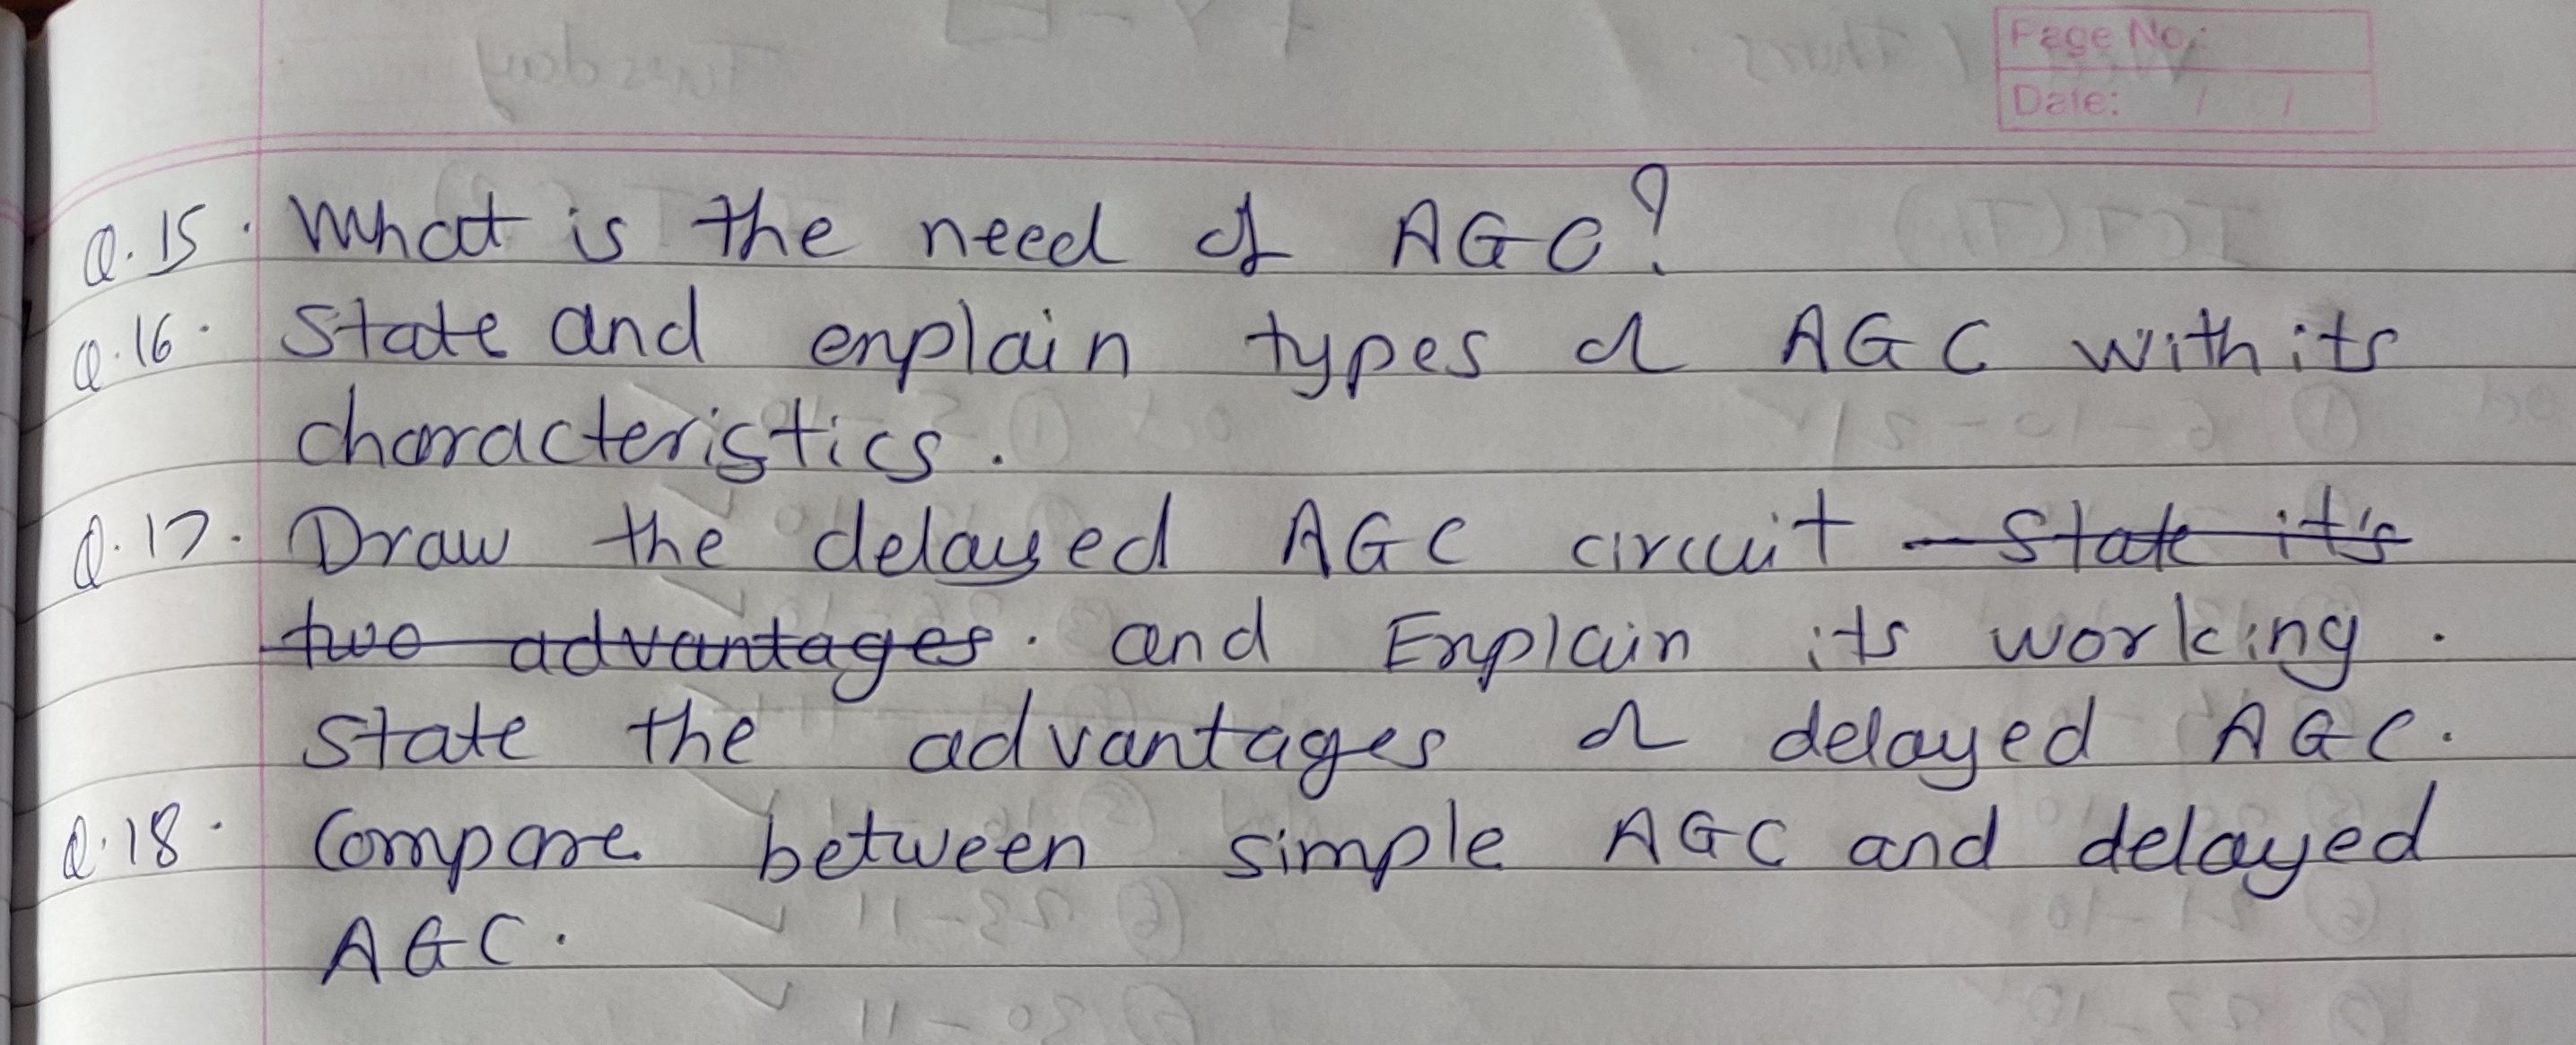 Page No.:
Date: / /
Q.15. What is the need of AGC?
Q.16. State and explain types of AGC with its
characteristics.
Q.17. Draw the delayed AGC circuit State it's
two advantages. and Explain its working.
State the advantages of delayed AGC.
Q.18. Compare between simple AGC and delayed
AGC.